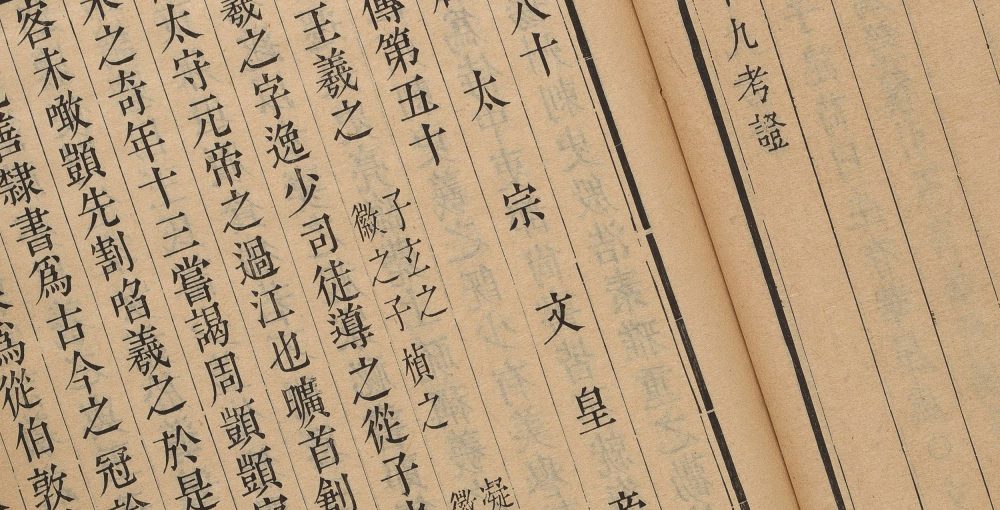 九考證
八十
太宗文皇帝
傳第五十
王羲之
子玄之
徽之子楨之
凝
徽
羲之字逸少司徒導之從子
太守元帝之過江也曠首創
之奇年十三嘗謁周顗顗
客未噉顗先割啗羲之於是
善隸書爲古今之冠
爲從伯敦